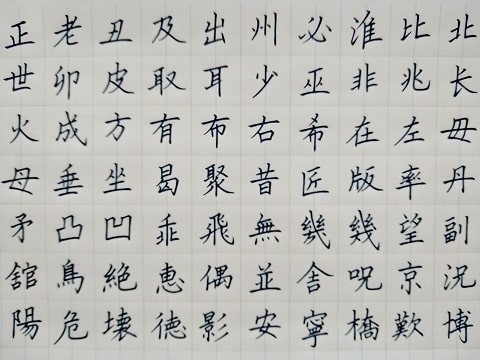 正老丑及出州必淮比北
世卯皮取耳少巫非兆长
火成方有布右希在左毋
母垂坐曷聚昔匠版率丹
矛凸凹乖飛無幾幾望副
舘鳥絶惠偶並舍呪京況
陽危壊徳影安寧橋歎博